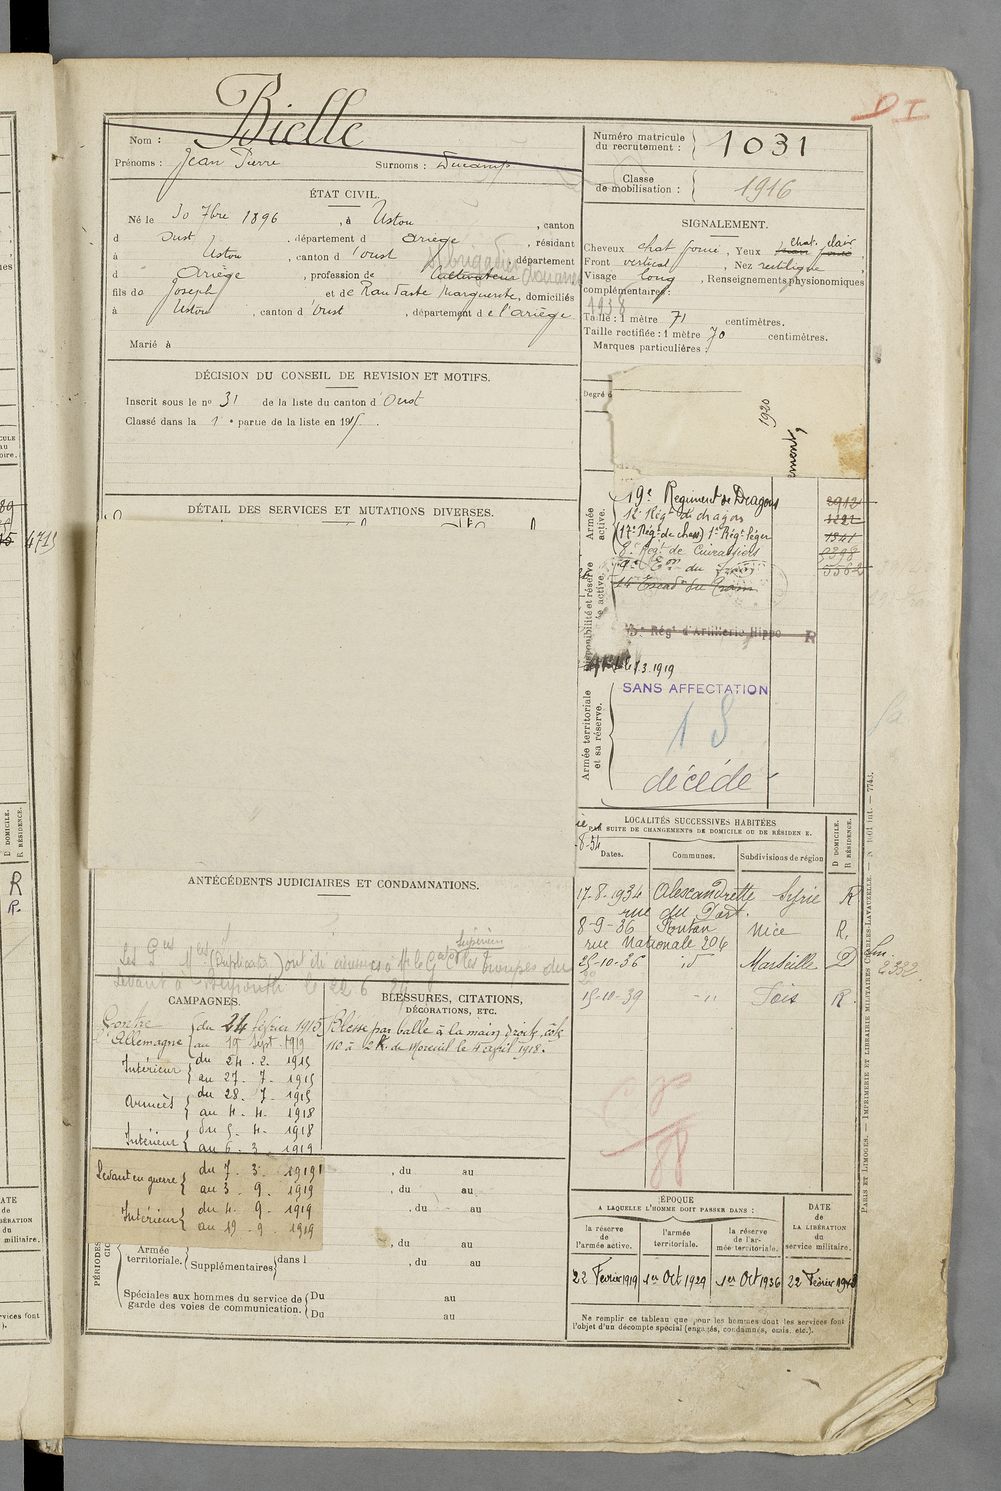 D I
Bielle
Nom :
Prénoms : Jean Pierre Surnoms : Ducamp
Numéro matricule du recrutement : 1031
Classe de mobilisation : 1916
ÉTAT CIVIL.
Né le 30 7bre 1896, à Ustou, canton
d'Oust, département d Ariège, résidant
à Ustou, canton d'Oust, département
d Ariège, profession de cultivateur
Brigadier douanes
fils de Joseph et de Marguerite, domiciliés
à Ustou, canton d'Oust, département de l'ariège
Marié à
SIGNALEMENT.
Cheveux chat foncé, Yeux chat. clair
Front vertical, Nez rectiligne
Visage long, Renseignements physionomiques
complémentaires :
1938
Taille : 1 mètre 71 centimètres.
Taille rectifiée : 1 mètre 70 centimètres.
Marques particulières :
DÉCISION DU CONSEIL DE REVISION ET MOTIFS.
Inscrit sous le no 31 de la liste du canton d'Oust
Classé dans la 1e partie de la liste en 1915.
Degré d
1920
DÉTAIL DES SERVICES ET MUTATIONS DIVERSES.
Armée active.
19e Regiment de Dragons 2912
12e Régt de dragons
(17e Régt de chass) 1er Régt léger 1541
8e Régt de Cuirassiers 9398
9e Eon du 5562
Disponibilité et réserve de l'armée active.
15 Escad du Train
Régt d'Artillerie Hippo R
1.3.1919
Armée territoriale et sa réserve.
SANS AFFECTATION
18
décédé
4719
R
R.
LOCALITÉS SUCCESSIVES HABITÉES
PAR SUITE DE CHANGEMENTS DE DOMICILE OU DE RÉSIDENCE.
Dates. Communes. Subdivisions de région D DOMICILE. R RÉSIDENCE.
17-8-1934 Alexandrette Syrie R
rue du Port.
8-9-36 Nice R,
rue Nationale 206
25-10-36 id Marseille D
15-10-39 -"- Foix R.
ANTÉCÉDENTS JUDICIAIRES ET CONDAMNATIONS.
Supérieur
(Duplicata) ont été adressées à Mr le Gal Ct les troupes du
Levant à Beyrouth le 22 6
CAMPAGNES.
Contre l'Allemagne du 24 février 1915
au 19 Sept. 1919
Intérieur du 24. 2. 1915
au 27. 7. 1915
Armées du 28. 7. 1915
au 4. 4. 1918
Intérieur du 5. 4. 1918
au 6. 3. 1919
Levant en guerre du 7. 3. 1919
au 3. 9. 1919
Intérieur du 4. 9. 1919
au 19. 9. 1919
BLESSURES, CITATIONS, DÉCORATIONS, ETC.
Blessé par balle à la main droite, côte
110 à 2 K. de Moreuil le 4 april 1918.
, du au
, du au
, du au
, du au
Armée territoriale. Supplémentaires dans l , du au
Spéciales aux hommes du service de garde des voies de communication. Du au
Du au
ÉPOQUE
A LAQUELLE L'HOMME DOIT PASSER DANS :
la réserve de l'armée active. l'armée territoriale. la réserve de l'armée territoriale. DATE de LA LIBÉRATION du service militaire.
22 Février 1919 1er Oct 1929 1er Oct 1936 22 Février 1943
Ne remplir ce tableau que pour les hommes dont les services font
l'objet d'un décompte spécial (engagés, condamnés, omis, etc.).
PARIS ET LIMOGES. — IMPRIMERIE ET LIBRAIRIE MILITAIRES CHARLES-LAVAUZELLE.